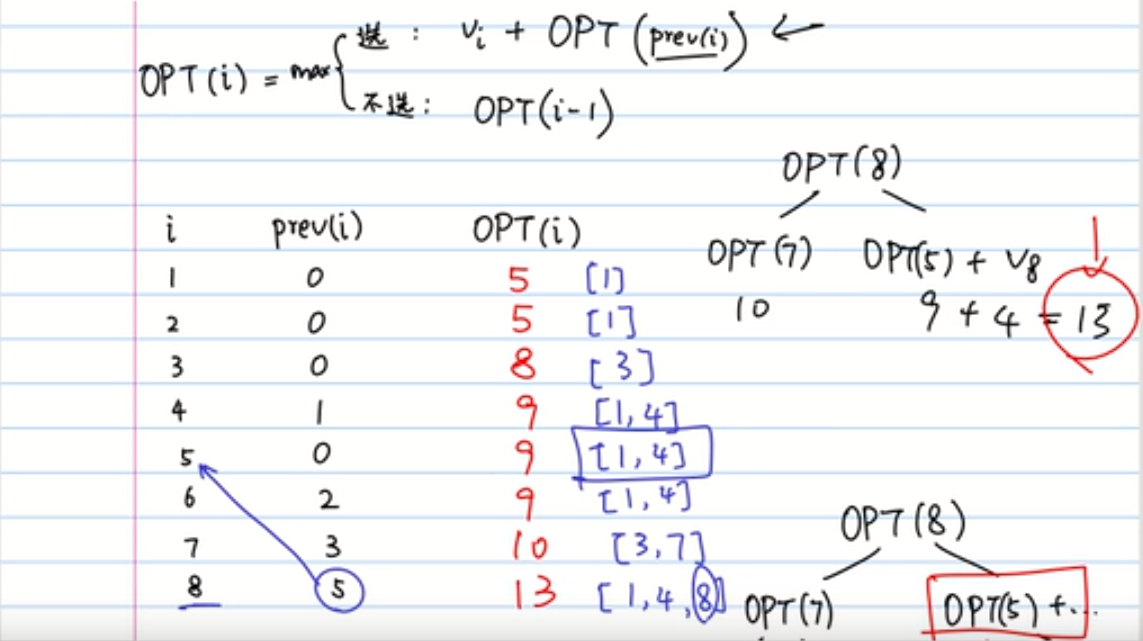 OPT(i) = max { 选: vi + OPT(prev(i)) ←
不选: OPT(i-1)
i prev(i) OPT(i)
1 0 5 [1]
2 0 5 [1]
3 0 8 [3]
4 1 9 [1,4]
5 0 9 [1,4]
6 2 9 [1,4]
7 3 10 [3,7]
8 5 13 [1,4,8]
OPT(8)
OPT(7) OPT(5) + v8
10 9 + 4 = 13
OPT(8)
OPT(7) OPT(5) +...